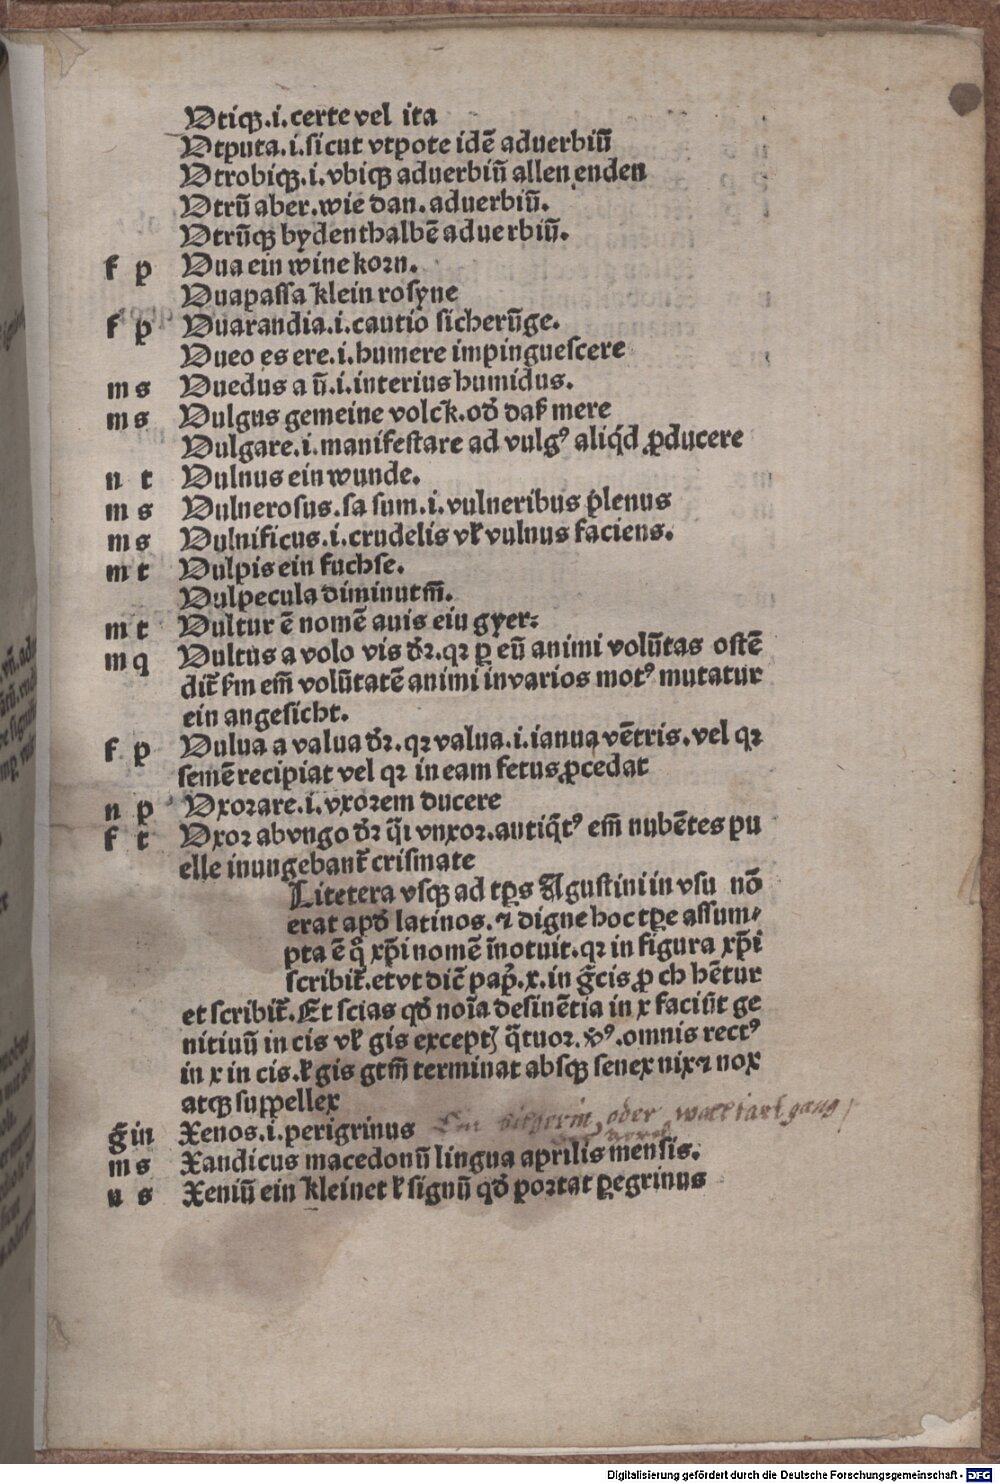 Vtiqꝫ.i.certe vel ita
Vtputa.i.sicut vtpote idē aduerbiū
Vtrobiqꝫ.i.vbiqꝫ aduerbiū allen enden
Vtrū aber.wie dan.aduerbiū.
Vtrūqꝫ bydenthalbē aduerbiū.
f p Vua ein winekorn.
Vuapassa klein rosyne
f p Vuarandia.i.cautio sicherūge.
Vueo es ere.i.humere impinguescere
m s Vuedus a ū.i.interius humidus.
m s Vulgus gemeine volck.od̓ daß mere
Vulgare.i.manifestare ad vulgꝰ aliq̇d ꝓducere
n t Vulnus ein wunde.
m s Vulnerosus.sa sum.i.vulneribus p̄lenus
m s Vulnificus.i.crudelis vł vulnus faciens.
m t Vulpis ein fuchse.
Vulpecula diminutm̄.
m t Vultur ē nomē auis ein gyer:
m q Vultus a volo vis dr̄.qꝛ ꝑ eū animi volūtas ostē
dit̄ ẜm em̄ volūtatē animi in varios motꝰ mutatur
ein angesicht.
f p Vulua a valua dr̄.qꝛ valua.i.ianua vētris.vel qꝛ
semē recipiat vel qꝛ in eam fetus ꝓcedat
n p Vxorare.i.vxorem ducere
f t Vxor ab vngo dr̄ q̄i vnxor.antiq̇tꝰ em̄ nubētes pu
elle inungebant̄ crismate
Litetera vsqꝫ ad tꝑs Agustini in vsu nō
erat apd̓ latinos.⁊ digne hoc tꝑe assum⸗
pta ē q̊ xp̄i nomē īnotuit.qꝛ in figura xp̄i
scribit̄.et vt dic̄ pap̄.x.in gr̄cis ꝓ ch hētur
et scribit̄.Et scias qd̓ noīa desinētia in x faciūt ge
nitiuū in cis vł gis exceptꝭ q̄tuor.vꝰ.omnis rectꝰ
in x in cis.ł gis gtm̄ terminat absqꝫ senex nix ⁊ nox
atqꝫ suppellex
ḡ in Xenos.i.perigrinus Ein bilgerin, oder wallfart gang
m s Xandicus macedonū lingua aprilis mensis.
n s Xeniū ein kleinet ł signū qd̓ portat ꝑegrinus
Digitalisierung gefördert durch die Deutsche Forschungsgemeinschaft - DFG